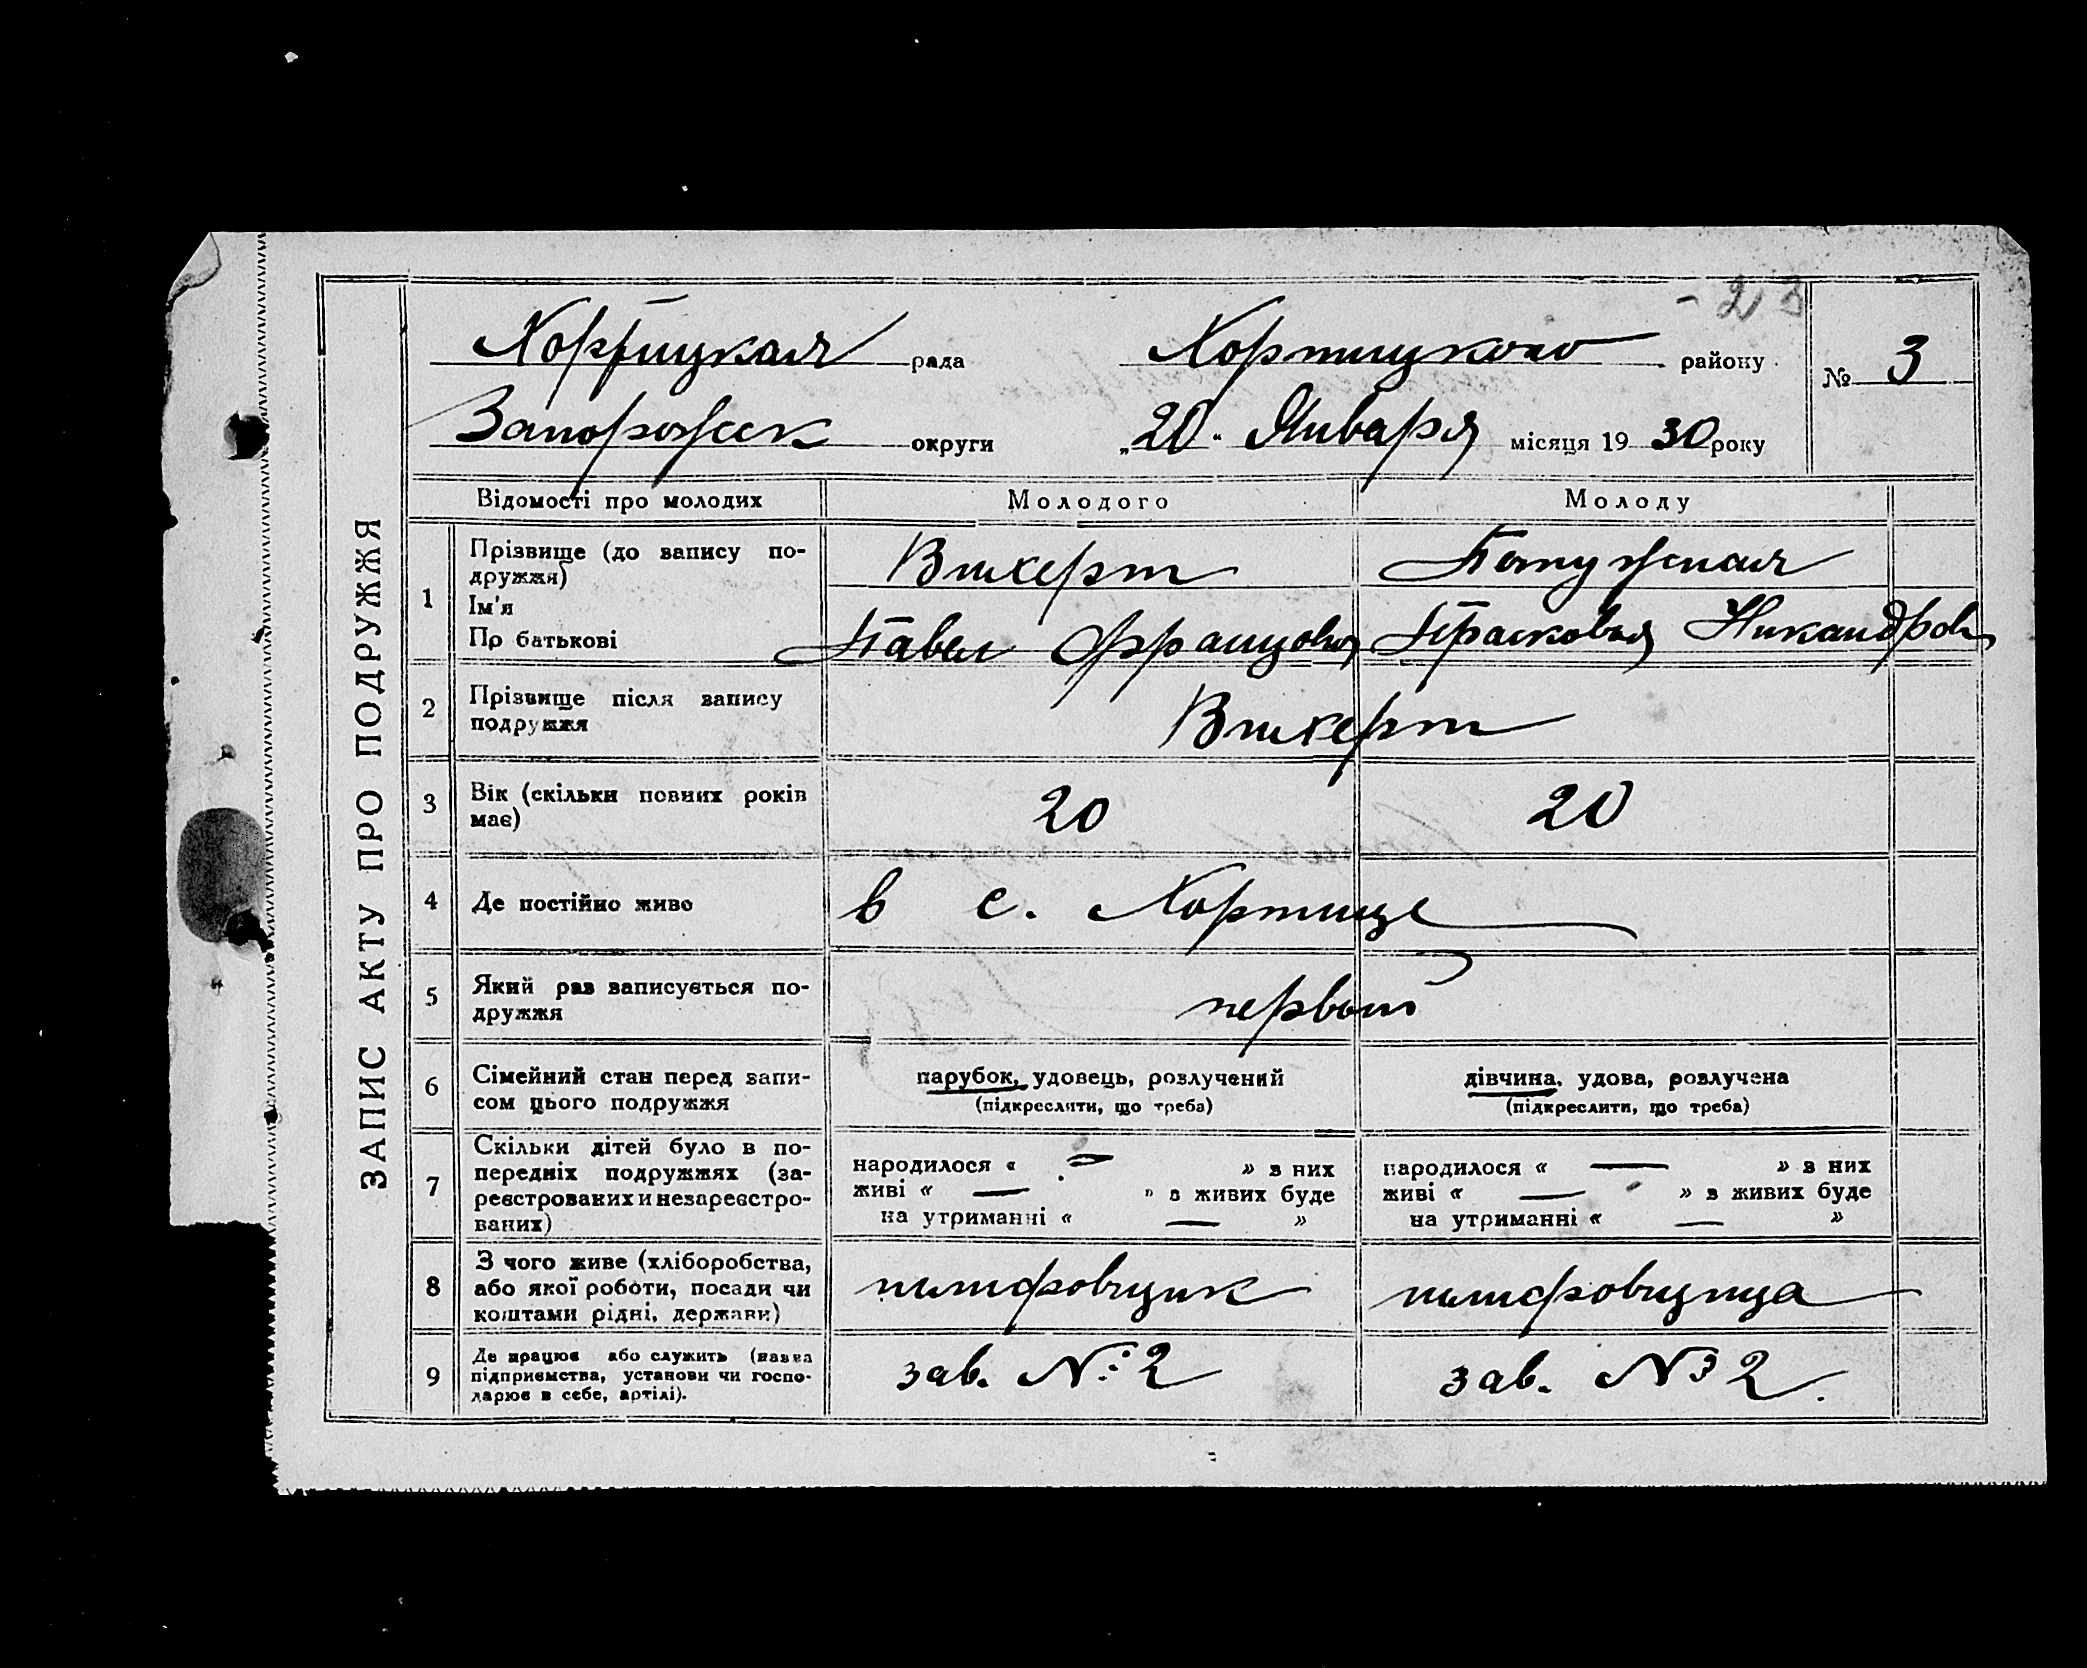 - 23
Хортицкая рада Хортицкого району
№ 3
Запорожск округи „20" Января місяця 1930 року
ЗАПИС АКТУ ПРО ПОДРУЖЖЯ
Відомості про молодих Молодого Молоду
1 Прізвище (до запису по-
дружжя)
Ім'я
По батькові
Викерт Потужная
Павел Францович Прасковья Никандров
2 Прізвище після запису
подружжя
Викерт
3 Вік (скільки повних років
має)
20 20
4 Де постійно живе
в с. Хортице
5 Який раз записується по-
дружжя
первый
6 Сімейний стан перед запи-
сом цього подружжя
парубок, удовець, розлучений
(підкреслити, що треба)
дівчина, удова, розлучена
(підкреслити, що треба)
7 Скільки дітей було в по-
передніх подружжях (за-
реєстрованих и незареєстро-
ваних)
народилося « — » з них
живі « — » з живих буде
на утриманні « — »
народилося « — » з них
живі « — » з живих буде
на утриманні « — »
8 З чого живе (хліборобства,
або якої роботи, посади чи
коштами рідні, держави)
шлифовщик шлифовщица
9 Де працює або служить (назва
підприємства, установи чи госпо-
дарює в себе, артілі).
зав. № 2 зав. № 2.